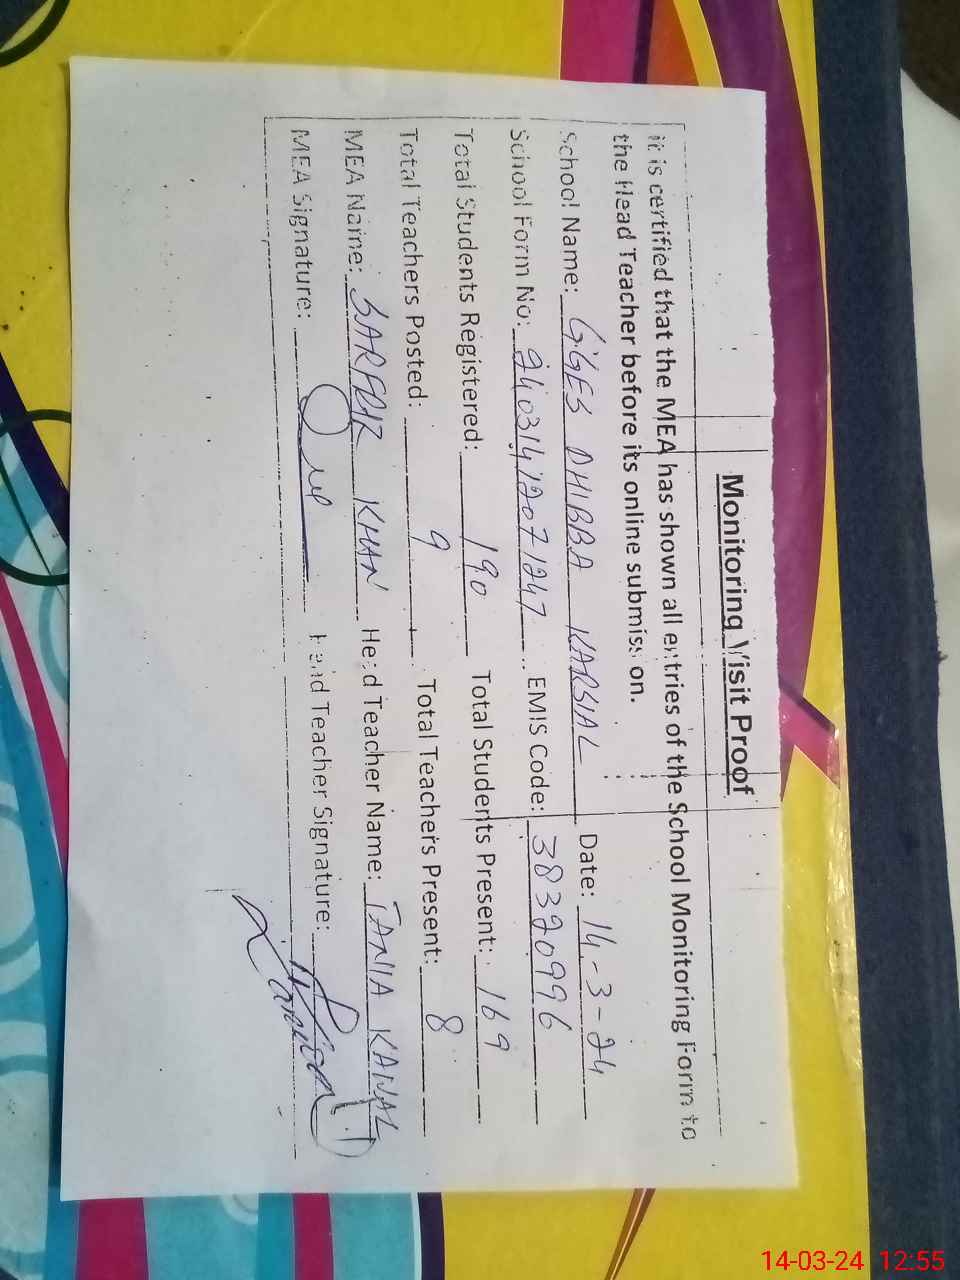 Monitoring Visit Proof
It is certified that the MEA has shown all entries of the School Monitoring Form to
the Head Teacher before its online submission.
School Name: GGES DHIBBA KARSIAL Date: 14-3-24
School Form No: 24031412071247 EMIS Code: 38320996
Total Students Registered: 190 Total Students Present: 169
Total Teachers Posted: 9 Total Teachers Present: 8
MEA Name: SARFRAZ KHAN Head Teacher Name: TANIA KANWAL
MEA Signature: Head Teacher Signature:
14-03-24 12:55